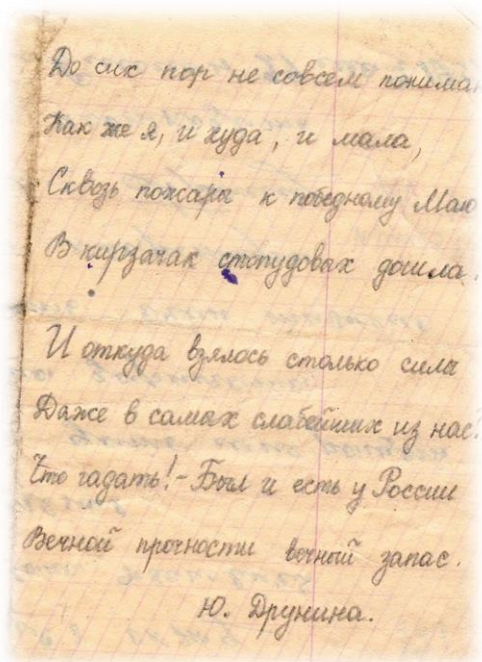 До сих пор не совсем понимаю
Как же я, и худа, и мала,
Сквозь пожары к победному Маю
В кирзачах стопудовых дошла.
И откуда взялось столько силы
Даже в самых слабейших из нас?
Что гадать! - Был и есть у России
Вечной прочности вечный запас.
Ю. Друнина.